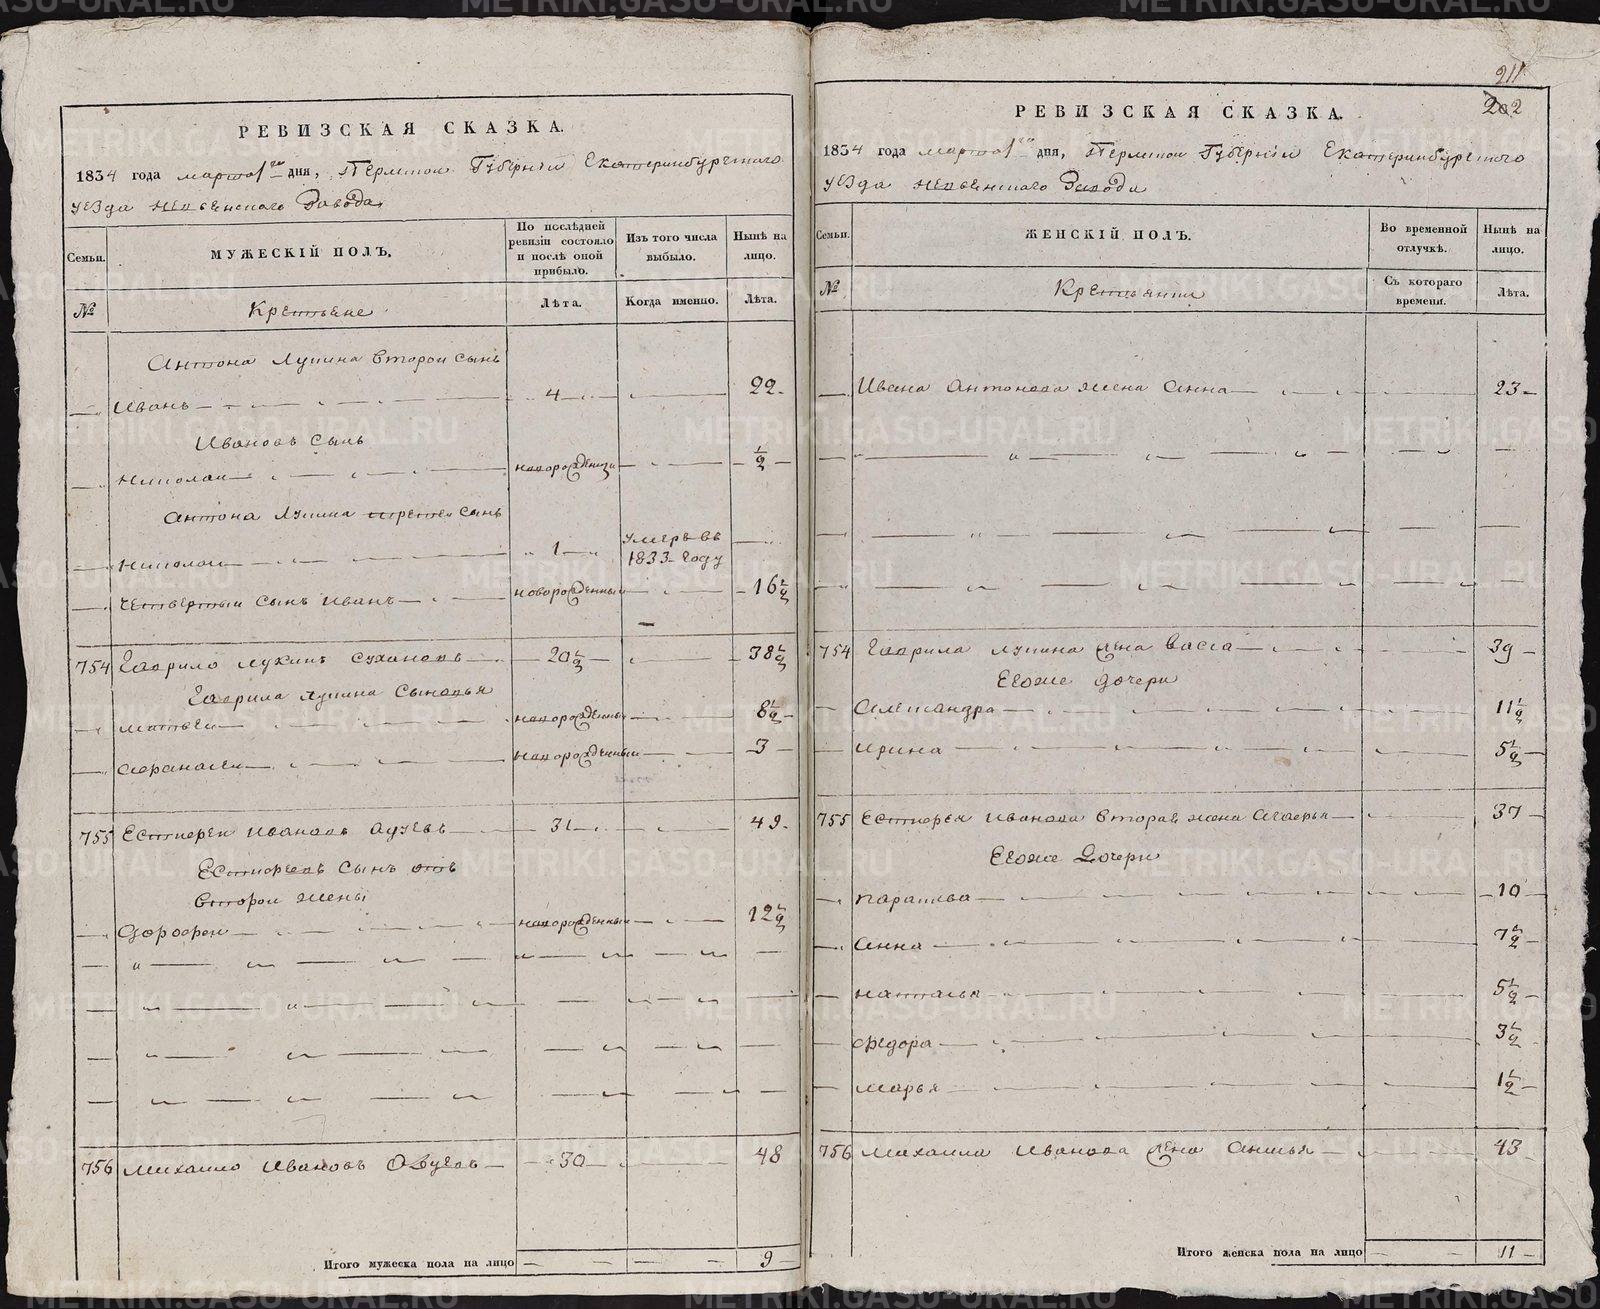 РЕВИЗСКАЯ СКАЗКА.
1834 года марта 1го дня, Пермской Губернiи Екатеринбургского
уезда Невьянского Завода
Семьи.
МУЖЕСКIЙ ПОЛЪ.
По послѣдней ревизiи состояло и послѣ оной прибыло.
Изъ того числа выбыло.
Нынѣ на лицо.
№
Крестьяне
Лѣта.
Когда именно.
Лѣта.
Антона Лукина второй сынъ
Иванъ 4 22
Ивановъ сынъ
Николай новорожденной ½
Антона Лукина третей сынъ
Николай 1 умеръ въ 1833 году
Четвертый сынъ Иванъ новорожденный 16½
754 Гаврило Лукинъ Сухановъ 20½ 38½
Гаврила Лукина сыновья
Матвей новорожденный 8½
Афанасей новорожденный 3
755 Естифей Ивановъ 31 49
сынъ отъ
второй жены
Дорофей новорожденный 12½
756 Михайло Ивановъ 30 48
Итого мужеска пола на лицо 9
211
202
РЕВИЗСКАЯ СКАЗКА.
1834 года марта 1го дня, Пермской Губернiи Екатеринбургского
уезда Невьянского Завода
Семьи.
ЖЕНСКIЙ ПОЛЪ.
Во временной отлучкѣ.
Нынѣ на лицо.
№
Крестьянки
Съ котораго времени.
Лѣта.
Ивана Антонова жена Анна 23
754 Гаврила Лукина жена Васса 39
Егоже дочери
Александра 11½
Ирина 5½
755 Ивонова вторая жена Агафья 37
Егоже дочери
Парасковья 10
Анна 7½
Наталья 5½
Федора 3½
Марья 1½
756 Михаила Иванова жена Анисья 43
Итого женска пола на лицо 11
METRIKI.GASO-URAL.RU